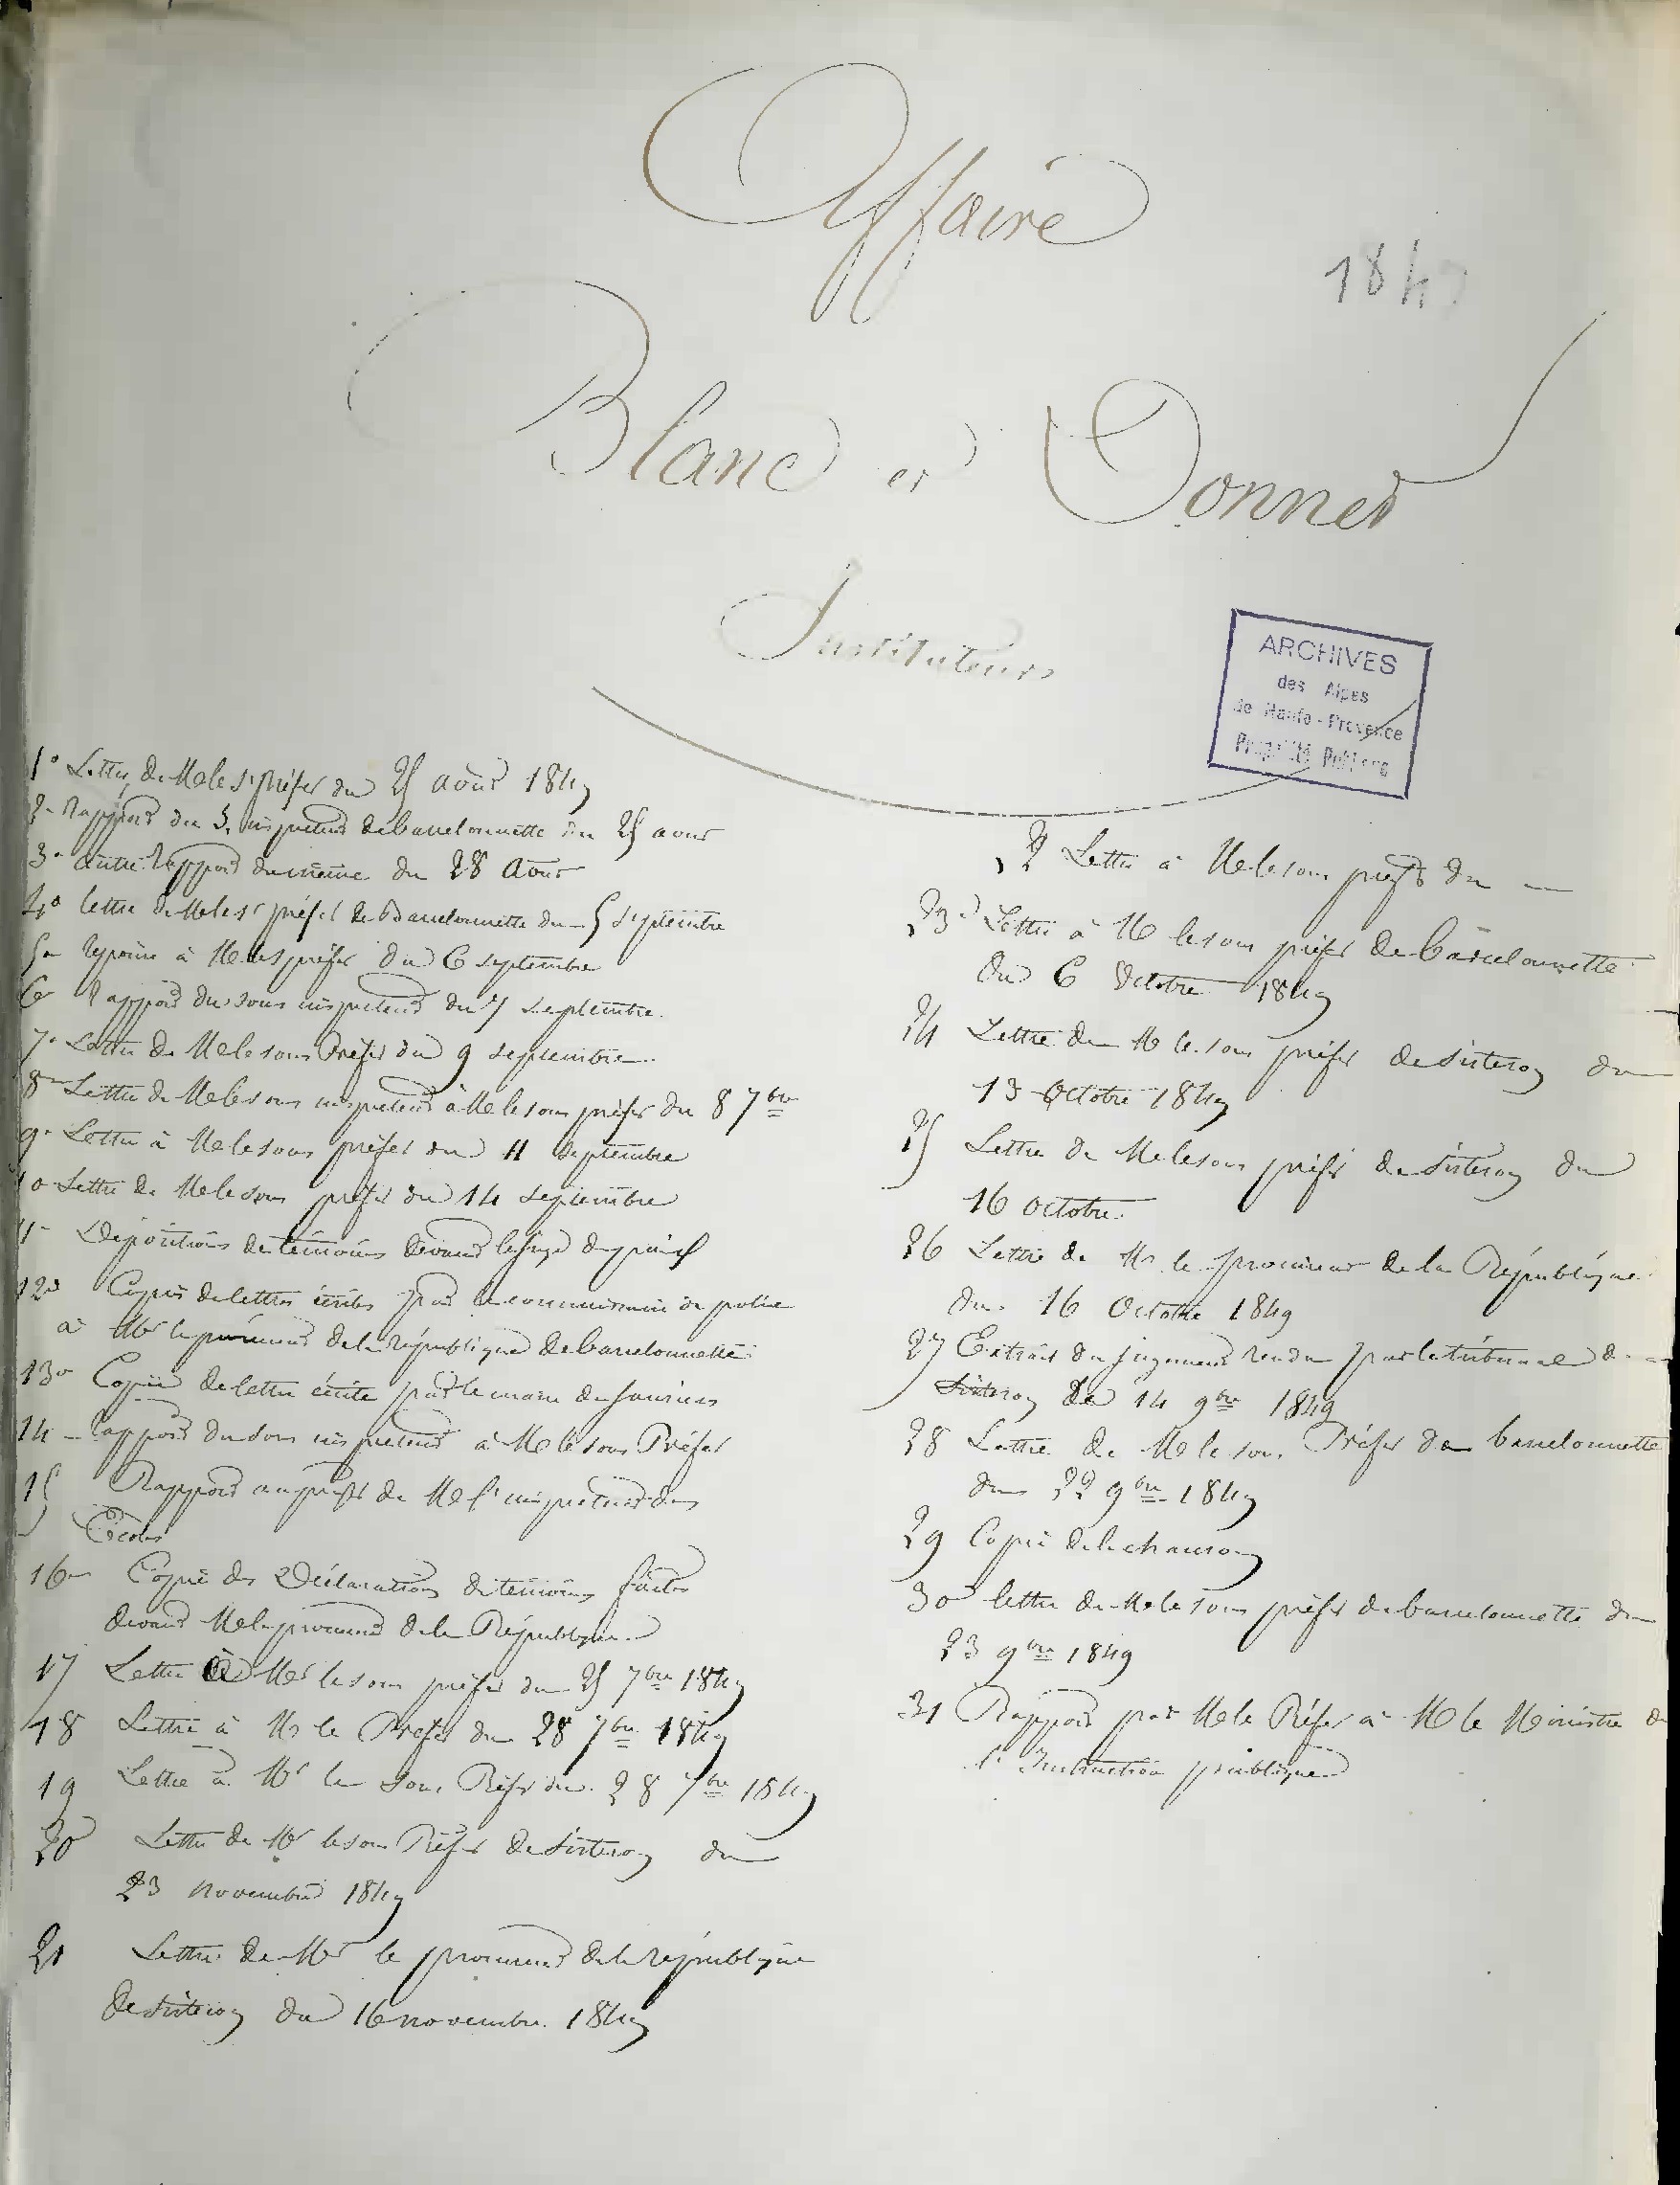 Affaire
1849
Blanc et Donnet
Instituteurs
ARCHIVES
des Alpes
de Haute-Provence
Propriété Publique
1° Lettre de M le s. préfet du 25 août 1849
2° Rapport du S. inspecteur de barcelonnette du 25 aout
3° autre rapport du même du 28 Aout
4° lettre de M le s. préfet de Barcelonnette du 5 septembre
5° réponse à M le s. préfet du 6 septembre
6° Rapport du sous inspecteur du 7 septembre
7° Lettre de M le sous Préfet du 9 septembre
8° Lettre de M le sous inspecteur à M le sous préfet du 8 7bre
9° Lettre à M le sous préfet du 11 septembre
10 Lettre de M le sous préfet du 14 septembre
11° Dépositions de témoins devant le juge de paix
12° Copies de lettres écrites par le commissaire de police
à Mr le procureur de la république de barcelonnette
13° Copie de lettre écite par le maire de Jausiers
14 Rapport du sous inspecteur à M le sous Préfet
15 Rapport au préfet de M l'inspecteur des
Ecoles
16° Copie des Déclarations de témoins faites
devant M le procureur de la République
17 Lettre à Mr le sous préfet du 25 7bre 1849
18 Lettre à Mr le Préfet du 28 7bre 1849
19 Lettre à Mr le Sous Préfet du 28 7bre 1849
20 Lettre de Mr le sous Préfet de Sisteron du
23 novembre 1849
21 Lettre de Mr le procureur de la république
de Sisteron du 16 novembre 1849
22 Lettre à M le sous préfet du
23° Lettre à M le sous préfet de barcelonnette
du 6 Octobre 1849
24 Lettre de M le sous préfet de Sisteron du
13 Octobre 1849
25 Lettre de M le sous préfet de Sisteron du
16 octobre
26 Lettre de Mr le procureur de la République
du 16 Octobre 1849
27 Extrait du jugement rendu par le tribunal de
Sisteron du 14 9bre 1849
28 Lettre de M le sous Préfet de barcelonnette
du 22 9bre 1849
29 Copie de la chanson
30 lettre de M le sous préfet de barcelonnette du
23 9bre 1849
31 Rapport par M le Préfet à M le Ministre de
l'Instruction publique